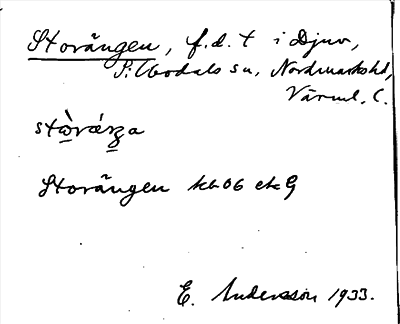 Storängen, f.d. t i Djuv,
S: Modals sn, Nordmarks hd,
Värml. l.
Storängen kb 06 ek G
E. Andersson 1933.